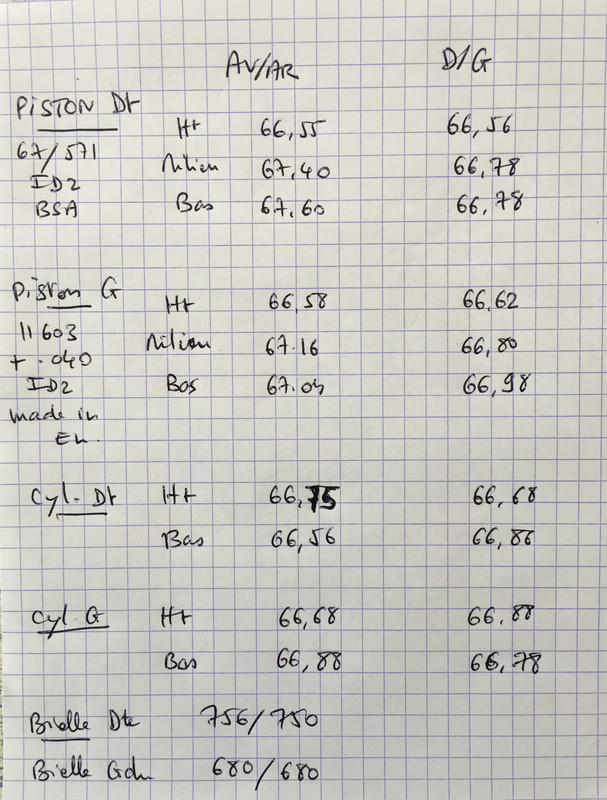 AV/AR D/G
PISTON Dt
Ht 66,55 66,56
67/571
Milieu 67,40 66,78
ID2
BSA Bas 67,60 66,78
Piston G
Ht 66,58 66,62
11603
Milieu 67.16 66,80
+.040
ID2 Bas 67.04 66,98
made in
En.
Cyl. Dt Ht 66,75 66,68
Bas 66,56 66,86
Cyl. G Ht 66,68 66.88
Bas 66,88 66,78
Bielle Dte 756/750
Bielle Gche 680/680